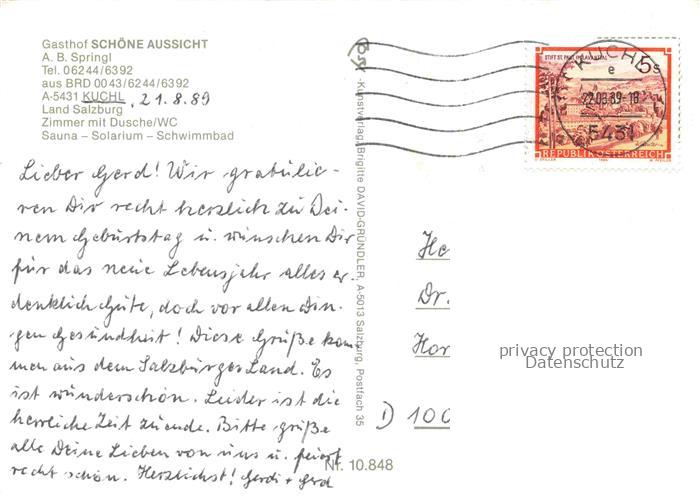 Gasthof SCHÖNE AUSSICHT
A. B. Springl
Tel. 06244/6392
aus BRD 0043/6244/6392
A-5431 KUCHL, 21.8.89
Land Salzburg
Zimmer mit Dusche/WC
Sauna – Solarium – Schwimmbad
Lieber Gerd! Wir gratulie-
ren Dir recht herzlich zu Dei-
nem Geburtstag u. wünschen Dir
für das neue Lebensjahr alles er-
denklich Gute, doch vor allen Din-
gen Gesundheit! Diese Grüße kom-
men aus dem Salzburger Land. Es
ist wunderschön. Leider ist die
herrliche Zeit zuende. Bitte grüße
alle Deine Lieben von uns u. feiert
recht schön. Herzlichst! Gerdi + Gerd
Kunstverlag Brigitte DAVID-GRÜNDLER, A-5013 Salzburg, Postfach 35
Nr. 10.848
STIFT ST. PAUL IM LAVANTTAL
5s
REPUBLIK ÖSTERREICH
KUCHL
e
22.08.89-18
5431
He
Dr.
Hor
D 100
privacy protection
Datenschutz